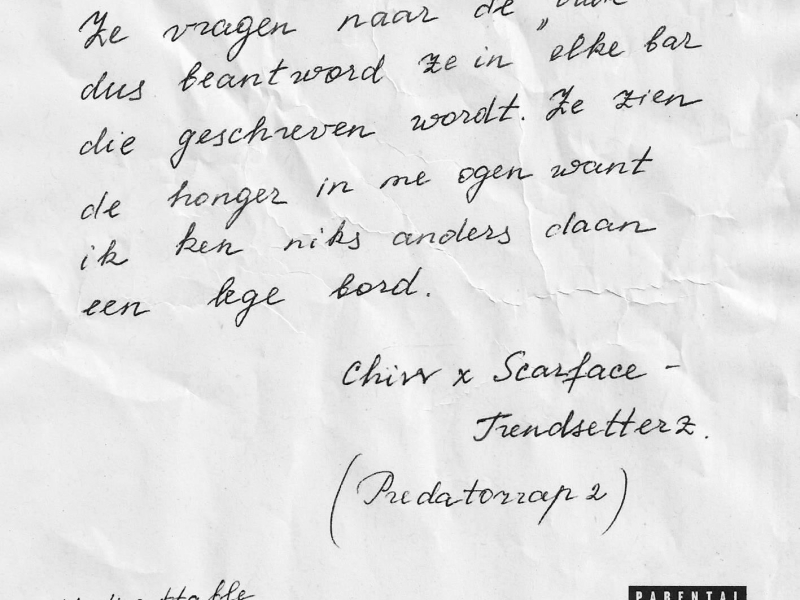 Ze vragen naar de
dus beantword ze in "elke bar
die geschreven wordt. Ze zien
de honger in me ogen want
ik ken niks anders daan
een lege bord.
Chivv x Scarface -
Trendsetterz.
(Predatorrap 2)
PARENTAL